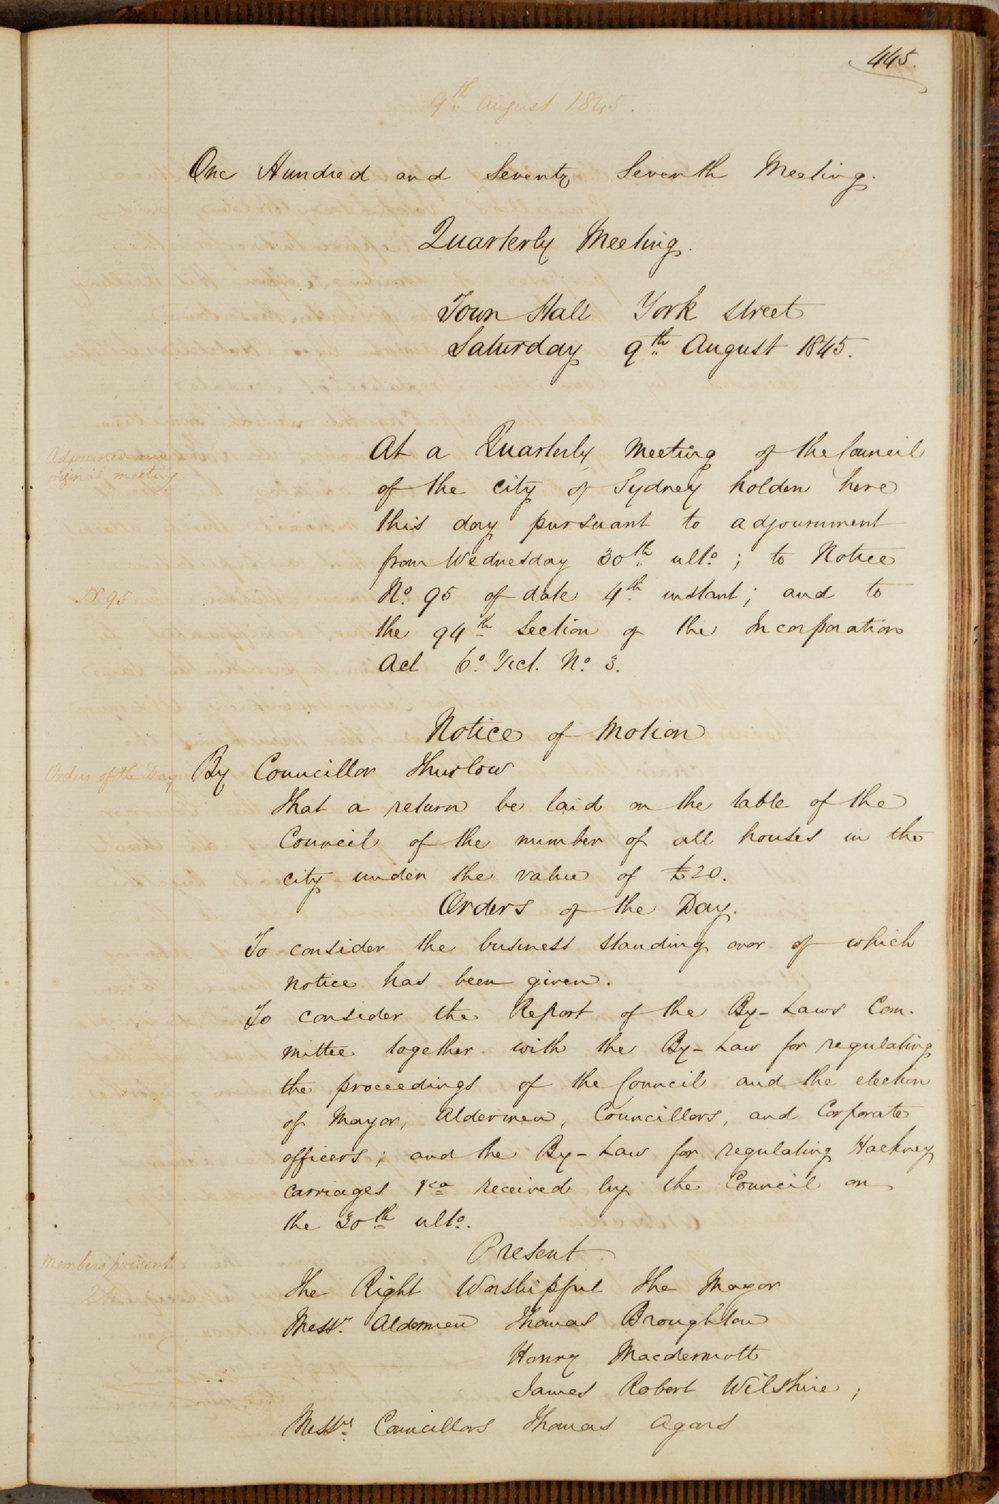 445.
9th August 1845.
One Hundred and Seventy Seventh Meeting.
Quarterly Meeting.
Town Hall York Street
Saturday 9th August 1845.
Adjourned and
original meeting
At a Quarterly Meeting of the Council
of the City of Sydney holden here
this day pursuant to adjournment
from Wednesday 30th ulto; to Notice
No 95
No. 95 of date 4th instant; and to
the 94th Section of the Incorporation
Act 6o Vict. No. 3.
Notice of Motion
Orders of the Day
By Councillor Thurlow
That a return be laid on the table of the
Council of the number of all houses in the
city under the value of £20.
Orders of the Day.
To consider the business standing over of which
notice has been given.
To consider the Report of the By-Laws Com-
mittee together with the By-Law for regulating
the proceedings of the Council and the election
of Mayor, Aldermen, Councillors, and Corporate
officers; and the By-Law for regulating Hackney
carriages &ca received by the Council on
the 30th ulto.
Present
Members present
The Right Worshipful The Mayor
Messrs Aldermen Thomas Broughton
Henry Macdermott
James Robert Wilshire;
Messrs Councillors Thomas Agars